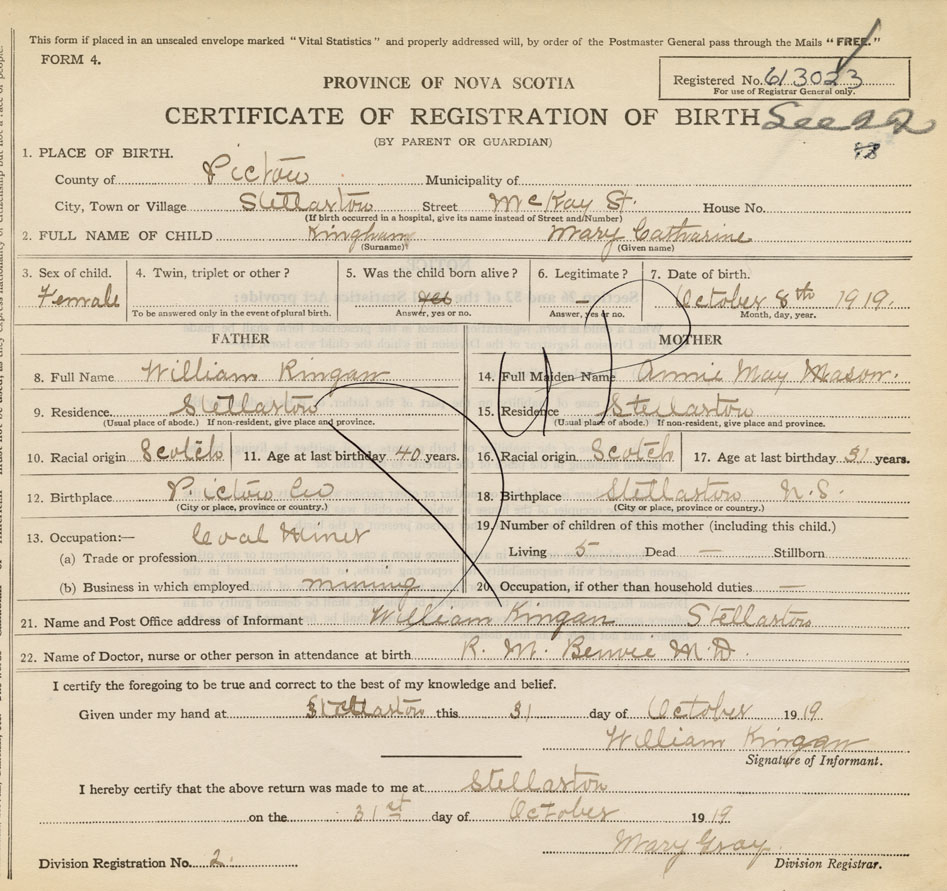 This form if placed in an unsealed envelope marked "Vital Statistics" and properly addressed will, by order of the Postmaster General pass through the Mails "FREE."
FORM 4.
PROVINCE OF NOVA SCOTIA
Registered No. 613023
For use of Registrar General only.
CERTIFICATE OF REGISTRATION OF BIRTH See 22
(BY PARENT OR GUARDIAN)
1. PLACE OF BIRTH.
County of Pictou Municipality of
City, Town or Village Stellarton Street McKay St. House No.
(If birth occurred in a hospital, give its name instead of Street and Number)
2. FULL NAME OF CHILD Kingham Mary Catharine
(Surname) (Given name)
3. Sex of child. 4. Twin, triplet or other? 5. Was the child born alive? 6. Legitimate? 7. Date of birth.
Female yes – October 8th 1919.
To be answered only in the event of plural birth. Answer, yes or no. Answer, yes or no. Month, day, year.
FATHER MOTHER
8. Full Name William Kingan 14. Full Maiden Name Annie May Mason.
9. Residence Stellarton 15. Residence Stellarton
(Usual place of abode.) If non-resident, give place and province. (Usual place of abode.) If non-resident, give place and province.
10. Racial origin Scotch 11. Age at last birthday 40 years. 16. Racial origin Scotch 17. Age at last birthday 31 years.
12. Birthplace Pictou Co 18. Birthplace Stellarton N.S.
(City or place, province or country.) (City or place, province or country.)
13. Occupation:— Coal Miner 19. Number of children of this mother (including this child.)
(a) Trade or profession Living 5 Dead — Stillborn
(b) Business in which employed mining 20. Occupation, if other than household duties —
21. Name and Post Office address of Informant William Kingan Stellarton
22. Name of Doctor, nurse or other person in attendance at birth R. M. Benvie M.D.
I certify the foregoing to be true and correct to the best of my knowledge and belief.
Given under my hand at Stellarton this 31 day of October 1919.
William Kingan
Signature of Informant.
I hereby certify that the above return was made to me at Stellarton
on the 31st day of October 1919
Mary Gray
Division Registration No. 2. Division Registrar.